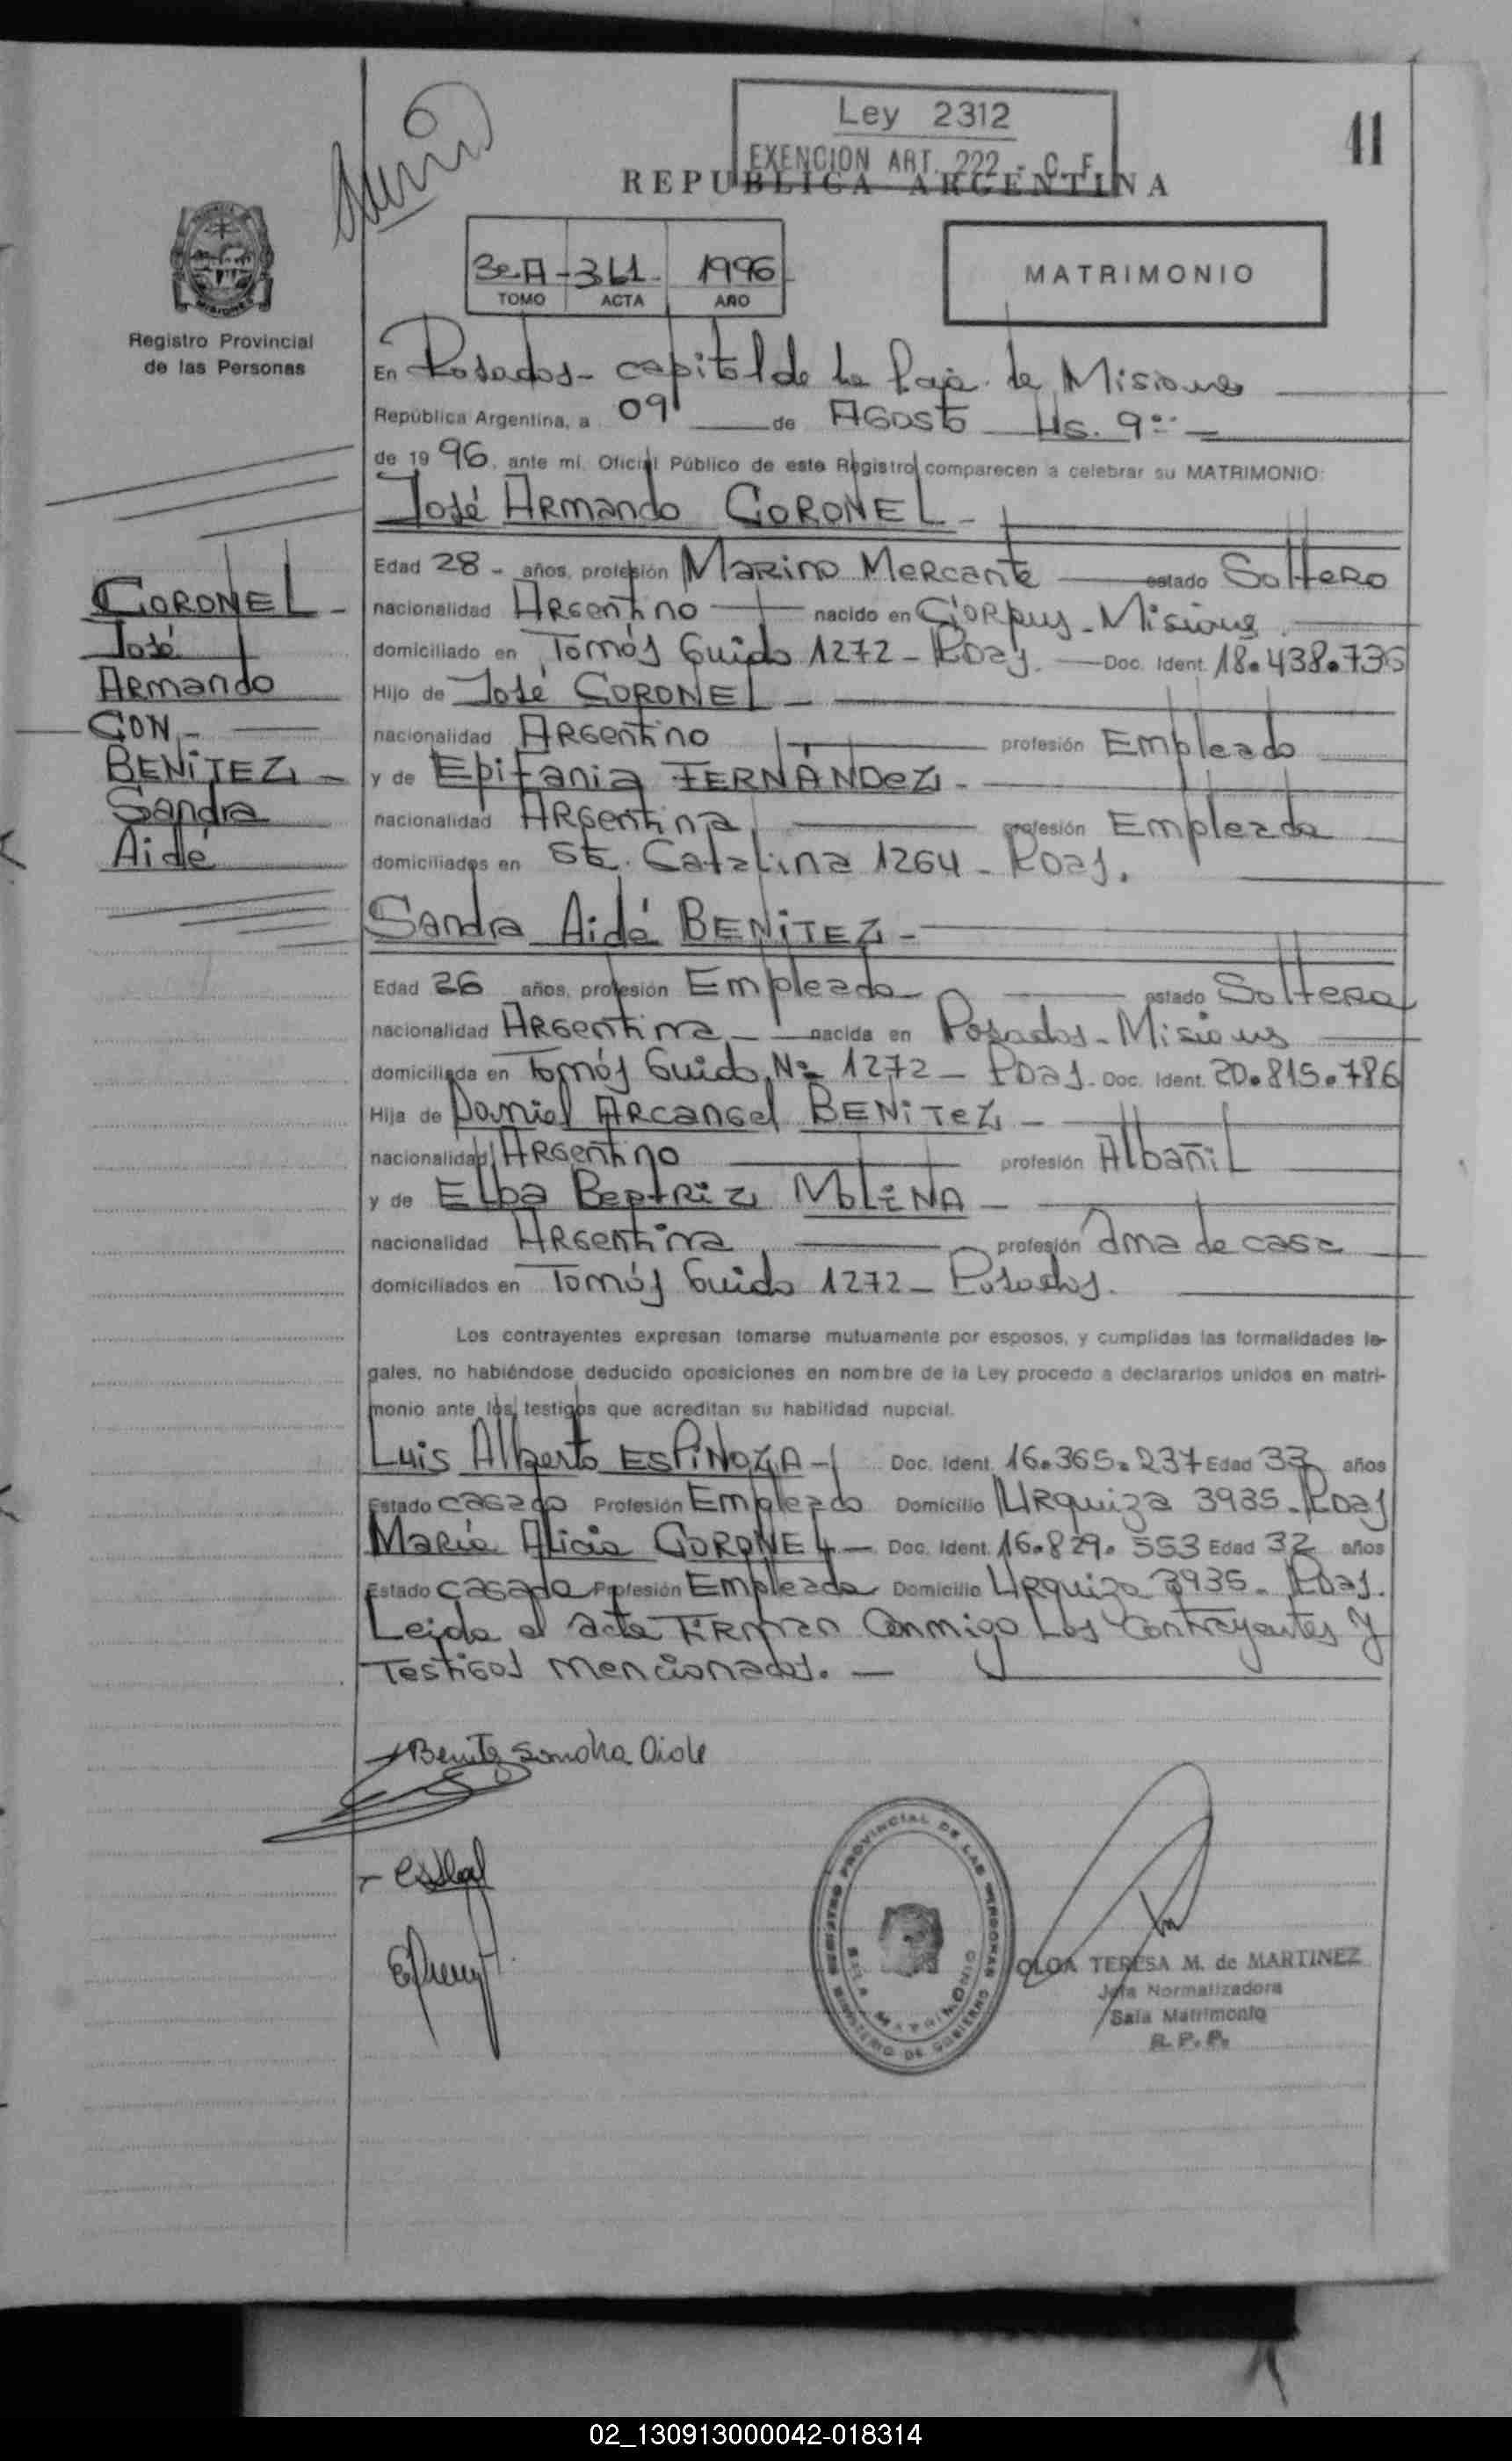 Ley 2312
EXENCION ART. 222 - C. F.
41
REPUBLICA ARGENTINA
3er A - 341 - 1996
TOMO ACTA AÑO
MATRIMONIO
Registro Provincial
de las Personas
En Posadas - capital de la Pcia. de Misiones
República Argentina, a 09 de Agosto Hs. 9
de 1996, ante mí, Oficial Público de este Registro comparecen a celebrar su MATRIMONIO:
José Armando CORONEL -
Edad 28 - años, profesión Marino Mercante estado Soltero
nacionalidad Argentino nacido en Corpus - Misiones
domiciliado en Tomás Guido 1272 - Pdas. Doc. Ident. 18.438.736
Hijo de José CORONEL -
nacionalidad Argentino profesión Empleado
y de Epifania FERNANDEZ -
nacionalidad Argentina profesión Empleada
domiciliados en Sta. Catalina 1264 - Pdas.
CORONEL -
José
Armando
CON -
BENiTEZ -
Sandra
Aidé
Sandra Aidé BENiTEZ -
Edad 26 años, profesión Empleada estado Soltera
nacionalidad Argentina - nacida en Posadas - Misiones
domiciliada en Tomás Guido Nº 1272 - Pdas. Doc. Ident. 20.815.786
Hija de Daniel Arcangel BENiTEZ -
nacionalidad Argentino profesión Albañil
y de Elba Beatriz MOLiNA -
nacionalidad Argentina profesión Ama de casa
domiciliados en Tomás Guido 1272 - Posadas.
Los contrayentes expresan tomarse mutuamente por esposos, y cumplidas las formalidades le-
gales, no habiéndose deducido oposiciones en nombre de la Ley procedo a declararlos unidos en matri-
monio ante los testigos que acreditan su habilidad nupcial.
Luis Alberto ESPiNOZA - Doc. Ident. 16.365.237 Edad 33 años
Estado casado Profesión Empleado Domicilio Urquiza 3935 - Pdas
María Alicia CORONEL - Doc. Ident. 16.829.553 Edad 32 años
Estado casada Profesión Empleada Domicilio Urquiza 3935 - Pdas.
Leida el acta Firman Conmigo Los Contrayentes y
Testigos mencionados. -
Benitez Sandra Aide
REGISTRO PROVINCIAL DE LAS PERSONAS
MINISTERIO DE GOBIERNO
SALA MATRIMONIO
OLGA TERESA M. de MARTINEZ
Jefa Normalizadora
Sala Matrimonio
R. P. P.
02_130913000042-018314